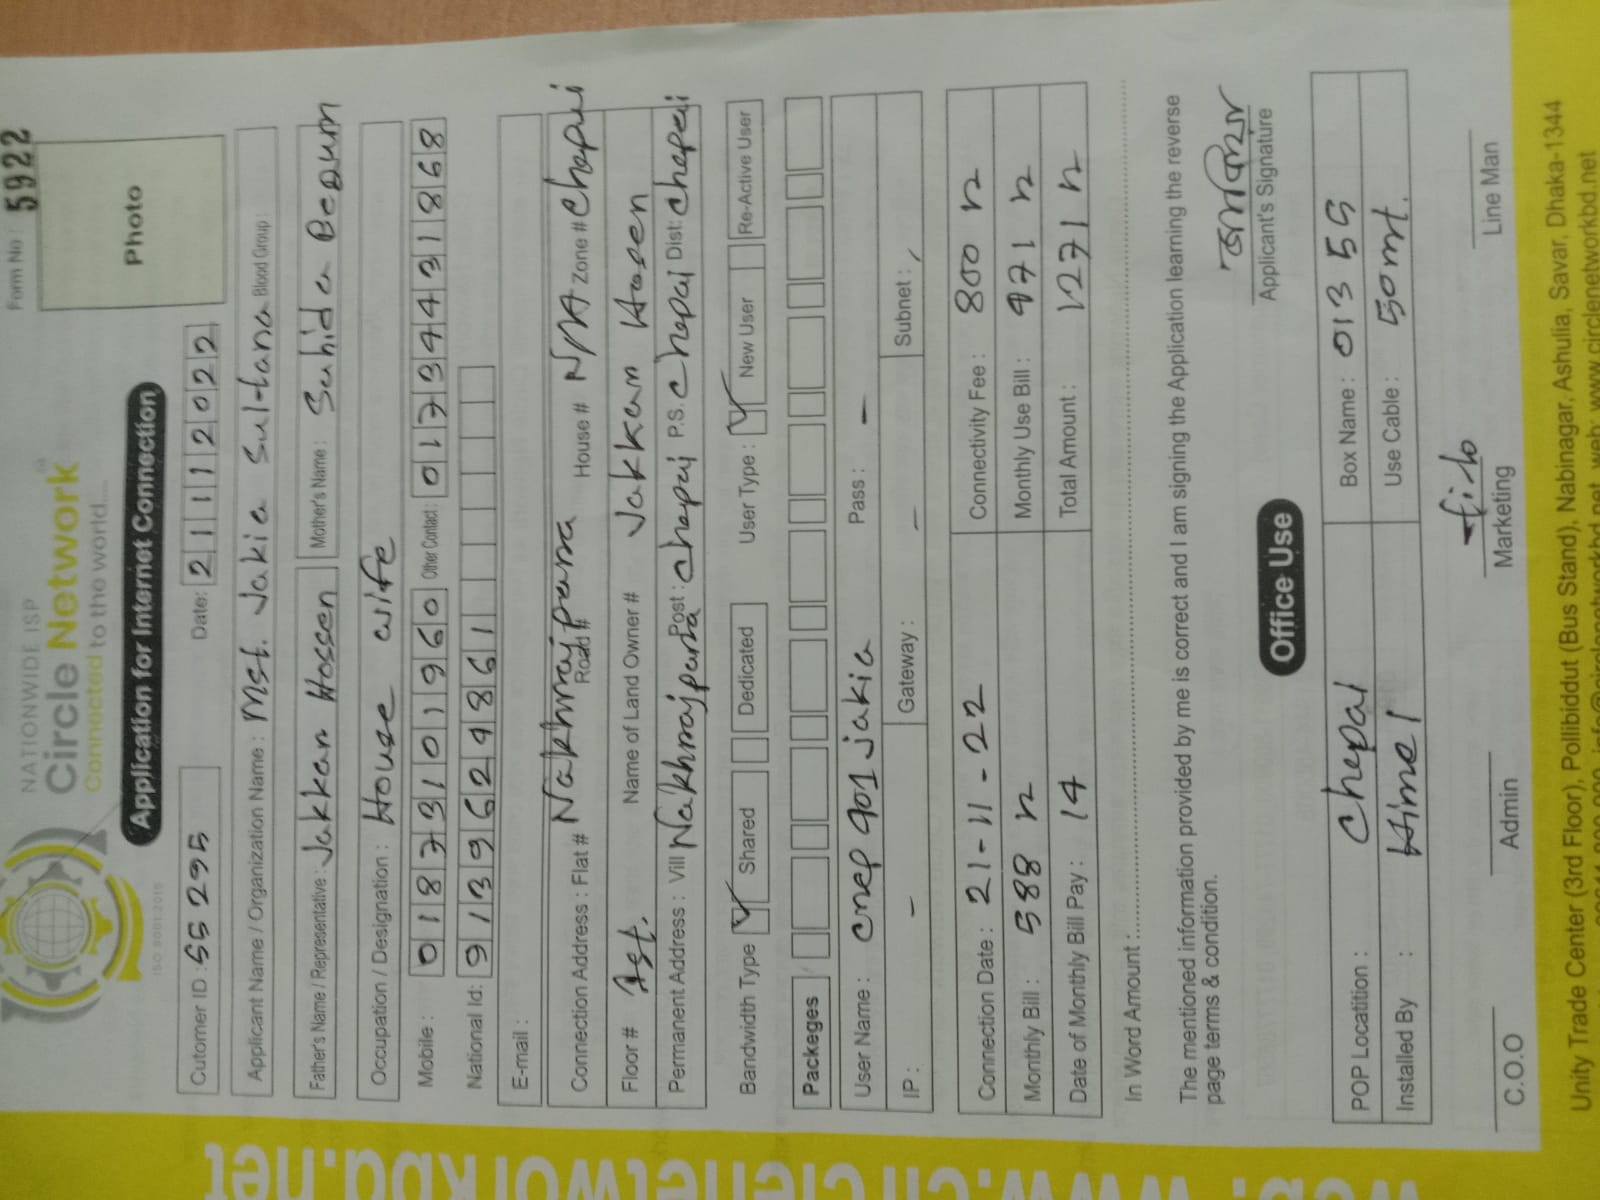 Form No : 5922
NATIONWIDE ISP
Circle Network
Connected to the world....
ISO 9001:2015
Photo
Application for Internet Connection
Cutomer ID : 55295 Date: 21112022
Applicant Name / Organization Name : Mst. Jakia Sultana Blood Group :
Father's Name / Representative : Jakkan Hossen Mother's Name : Sahida Begum
Occupation / Designation : House wife
Mobile : 01873101960 Other Contact : 01734431868
National Id: 9139624861
E-mail :
Connection Address : Flat # Nakhrajpara Road # House # N/A Zone #
Floor # 1st. Name of Land Owner # Jakkan Hosen
Permanent Address : Vill Nakhrajpara Post : P.S. Dist:
Bandwidth Type Shared Dedicated User Type : New User Re-Active User
Packeges
User Name : Jakia Pass : -
IP : - Gateway : - Subnet :
Connection Date : 21-11-22 Connectivity Fee : 800
Monthly Bill : 588 Monthly Use Bill :
Date of Monthly Bill Pay : 14 Total Amount : 1271
In Word Amount :
The mentioned information provided by me is correct and I am signing the Application learning the reverse
page terms & condition.
Applicant's Signature
Office Use
POP Locatition : Box Name : 01355
Installed By : Himel Use Cable : 50mt.
C.O.O Admin Marketing Line Man
Unity Trade Center (3rd Floor), Pollibiddut (Bus Stand), Nabinagar, Ashulia, Savar, Dhaka-1344
web: www.circlenetworkbd.net